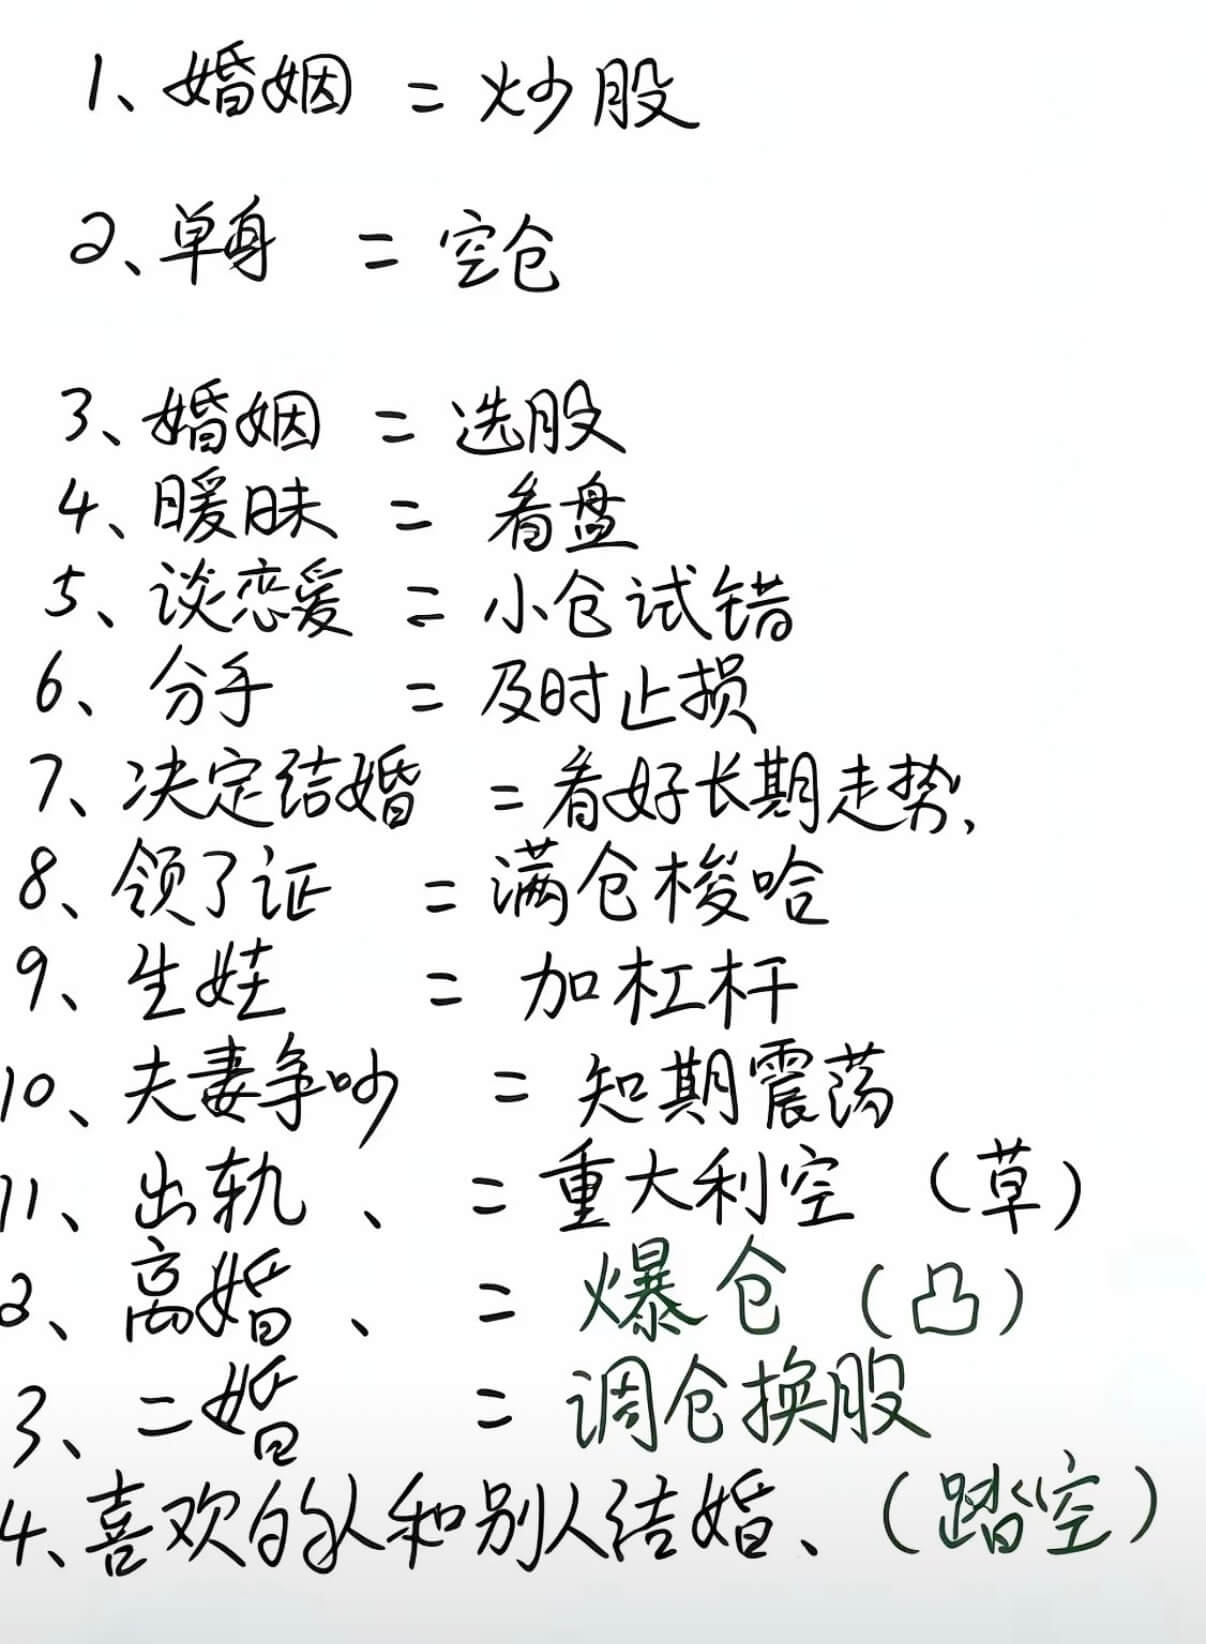 1、婚姻 = 炒股
2、单身 = 空仓
3、婚姻 = 选股
4、暧昧 = 看盘
5、谈恋爱 = 小仓试错
6、分手 = 及时止损
7、决定结婚 = 看好长期走势、
8、领了证 = 满仓梭哈
9、生娃 = 加杠杆
10、夫妻争吵 = 短期震荡
11、出轨、 = 重大利空 (草)
2、离婚、 = 爆仓 (凸)
3、二婚 = 调仓换股
4、喜欢的人和别人结婚、(踏空)